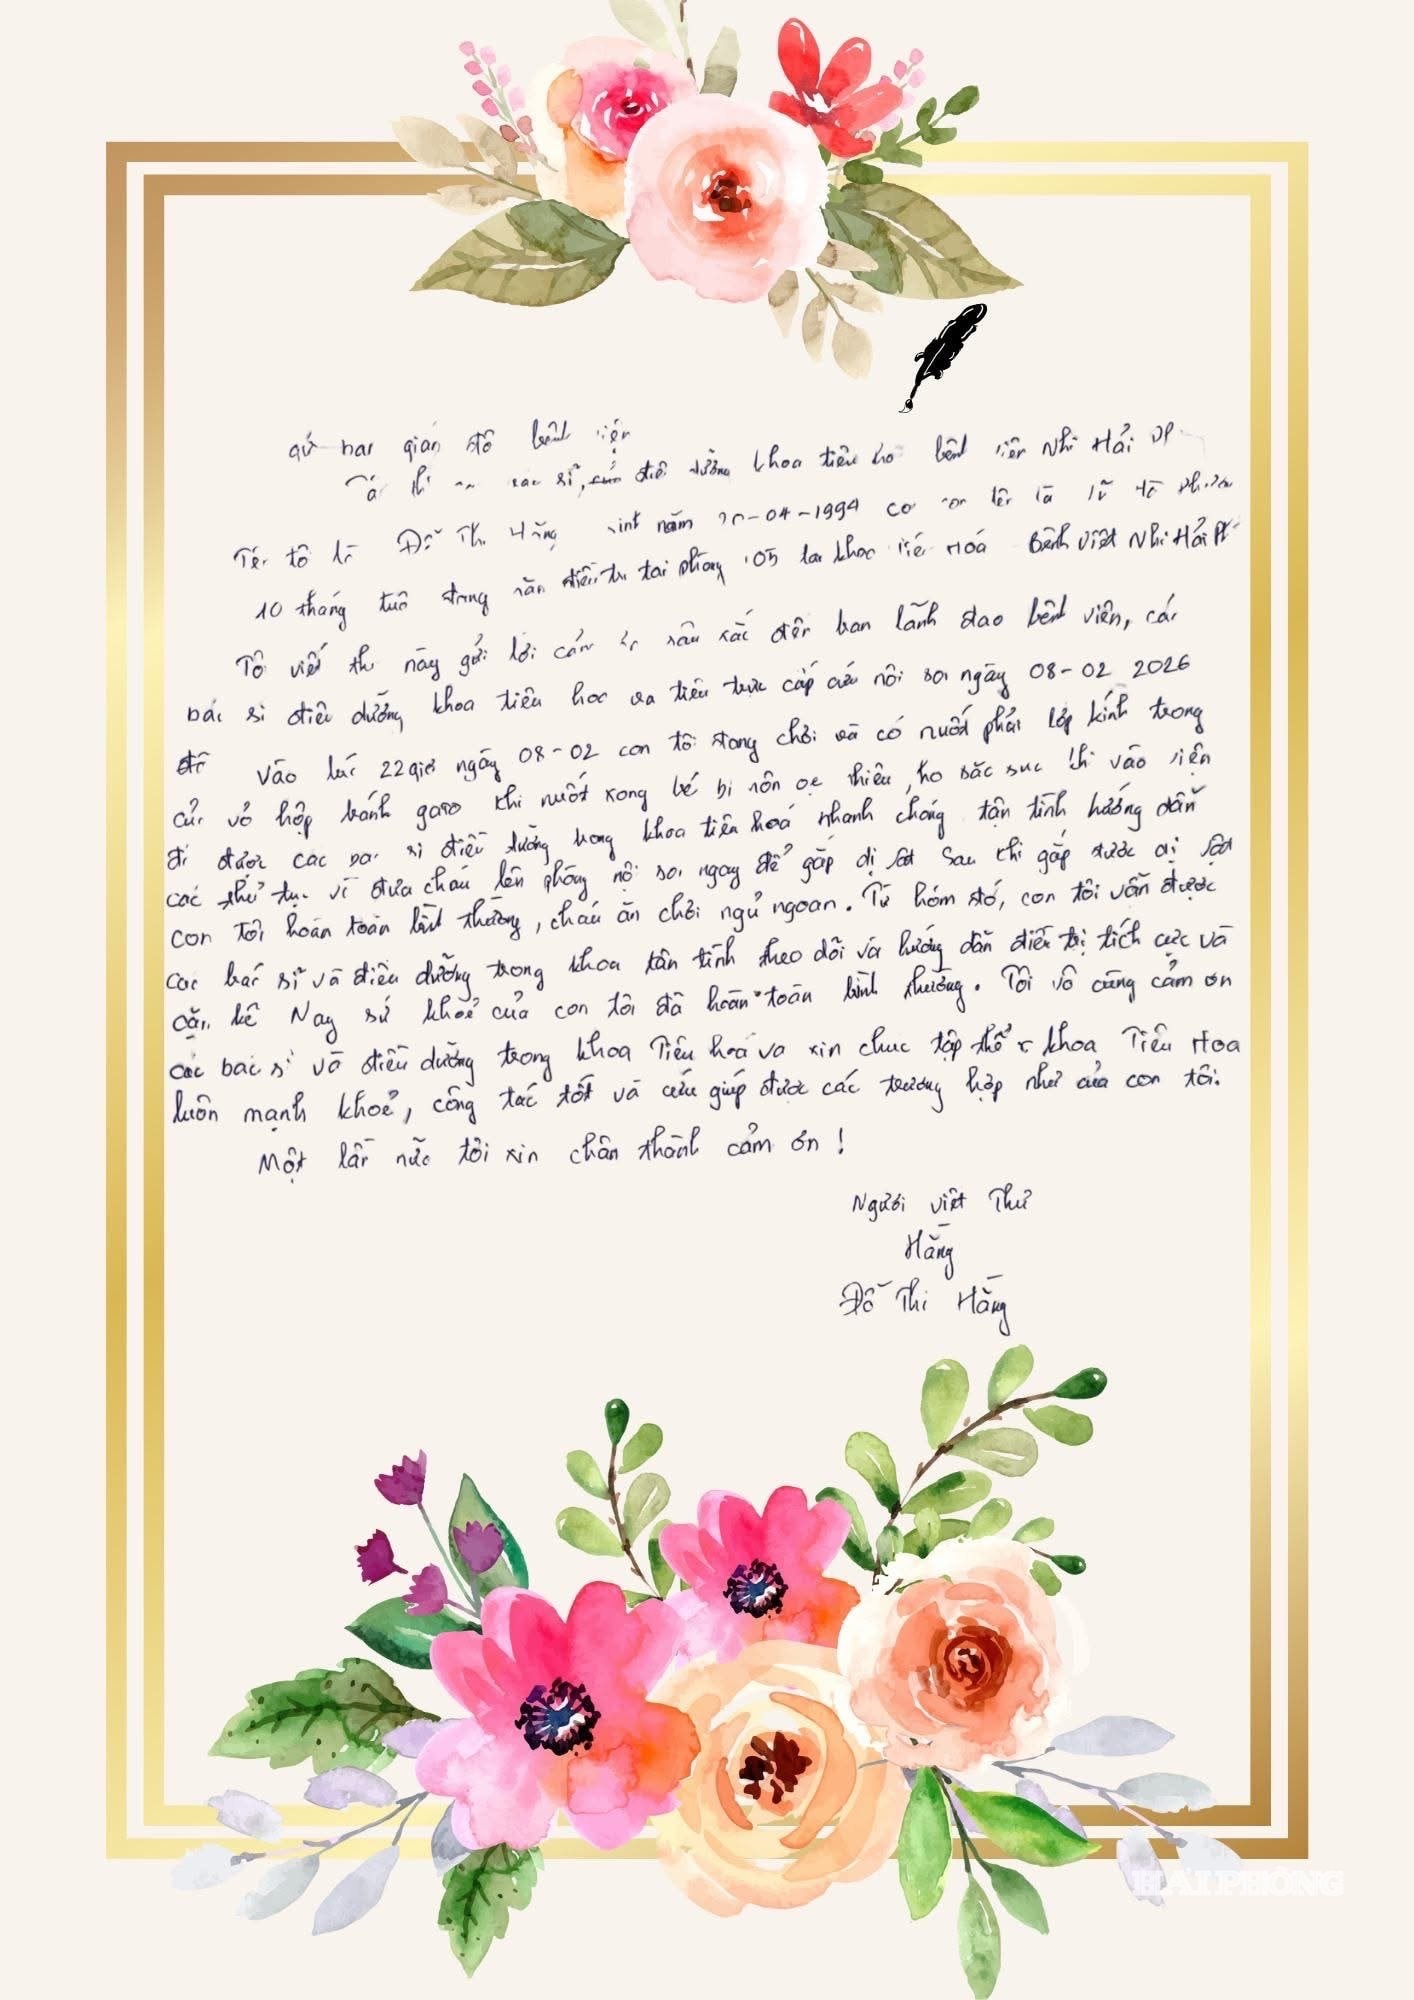 gử ban giám đô bệnh viện
sĩ, điề dưỡng khoa tiêu ho bệnh viên Nhi Hải
Tên tô là Đỗ Thị Hằng sinh năm -04-1994 có con tên là
10 tháng tuổ đang nằn điều trị tại phòng 105 tại khoa Tiê Hoá Bệnh viện Nhi Hải Ph
Tô viế thư này gửi lời cảm ơn sâu sắc đến ban lãnh đao bệnh viên, các
bác sĩ điêu dưỡng khoa tiêu hoc va tiêu trực cấp cứu nôi soi ngày 08-02 2026
Vào lúc 22giơ ngày 08-02 con tôi đang chơi và có nuốt phải lớp kính trong
của vỏ hộp bánh gaso khi nuốt xong bé bị nôn oe nhiêu, ho sặc suc khi vào viện
đi được các bac si điều dưỡng trong khoa tiên hoá nhanh chóng tận tình hướng dẫn
các thủ tục vì đưa cháu lên phòng nộ soi ngay để gắp dị vật Sau khi gắp được dị vật
con tôi hoàn toàn bình thường, cháu ăn chơi ngủ ngoan. Từ hôm đó, con tôi vẫn được
cac bác sĩ và điêu dưỡng trong khoa tân tình theo dõi và hướng dẫn điều trị tích cực và
cặn kẽ Nay sứ khoẻ của con tôi đã hoàn toàn bình thường. Tôi vô cùng cảm ơn
các bac sĩ và điều dưỡng trong khoa Tiêu hoá va xin chuc tập thể khoa Tiêu Hoa
luôn mạnh khoẻ, công tác tốt và cứu giúp được các trương hợp như của con tôi.
Một lần nữa tôi xin chân thành cảm ơn !
Người viết Thư
Hằng
Đỗ Thi Hằng
HẢI PHÒNG